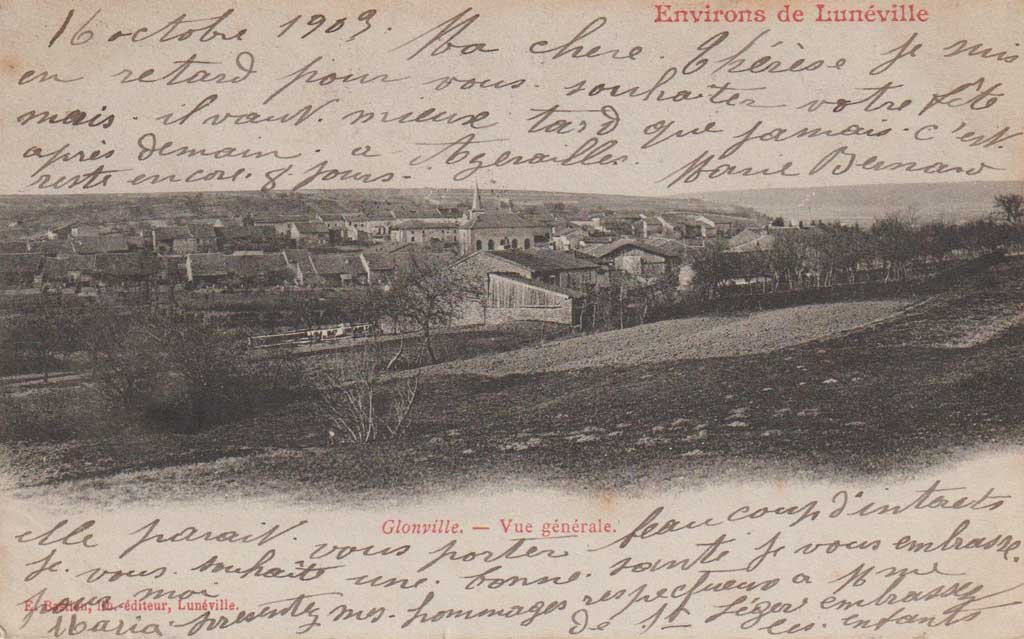 Environs de Lunéville
16 octobre 1903. Ma chere. Thérèse je mis
en retard pour vous. souhaiter votre fête
mais. il vaut. mieux tard que jamais. c'est.
après demain. a Azerailles. Marie Bernard
reste encore. 8 jours.
Glonville. — Vue générale.
elle parait. vous porter beaucoup d'interets
je. vous. souhaite une. bonne. santé je vous embrasse.
pour moi
E. Bastien, lib.-éditeur, Lunéville.
Maria presentez mes. hommages respectueux a Mme
de St Léger embrassez
les enfants